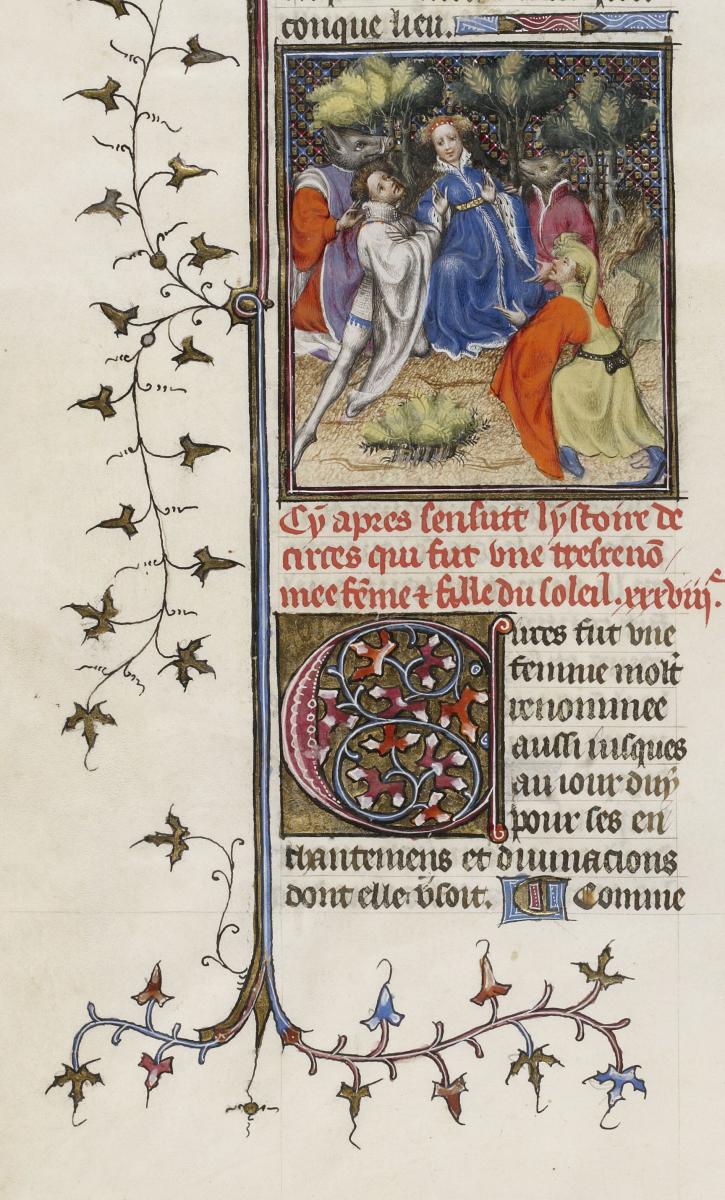 conque lieu.
Cy apres sensuit lystoire de
circes qui fut vne tresrenō
mee fēme ⁊ fille du soleil. .xxxviijᵉ.
Circes fut vne
femme molt
renommee
aussi iusques
au iour duy
pour ses en
chantemens et diuinacions
dont elle vsoit. Comme